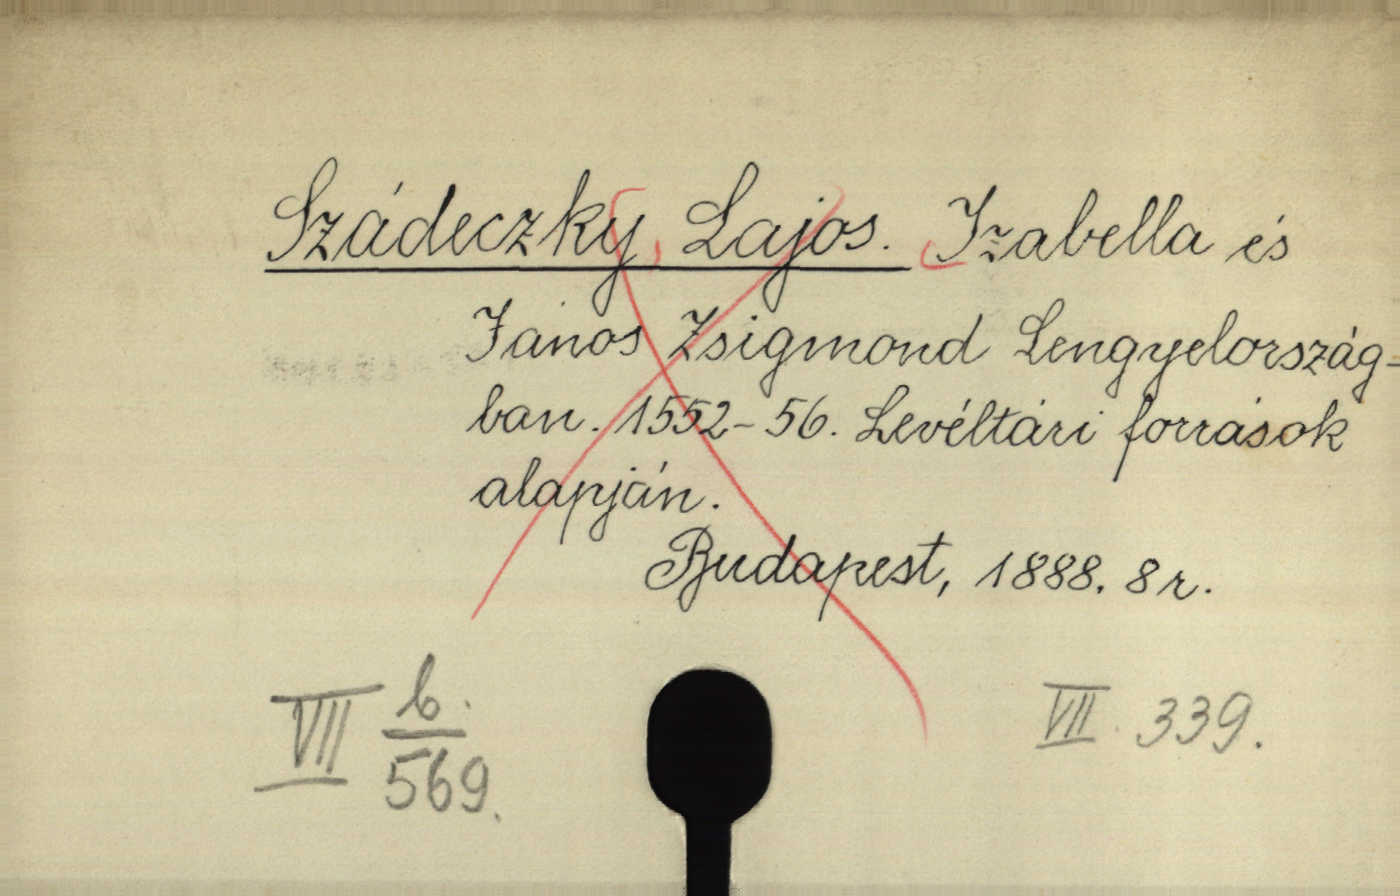 Szádeczky, Lajos. Izabella és
János Zsigmond Lengyelország-
ban. 1552-56. Levéltári források
alapján.
Budapest, 1888. 8 r.
VII b. / 569.
VII. 339.